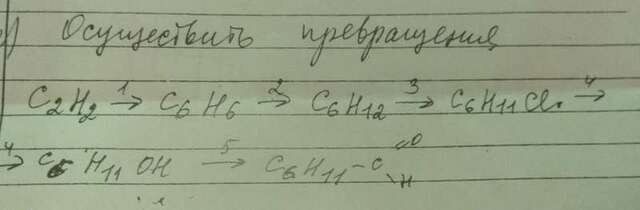 Осуществить превращения
C2H2 1→ C6H6 2→ C6H12 3→ C6H11Cl. 4→
4→ C6H11OH 5→ C6H11-C=O
\H